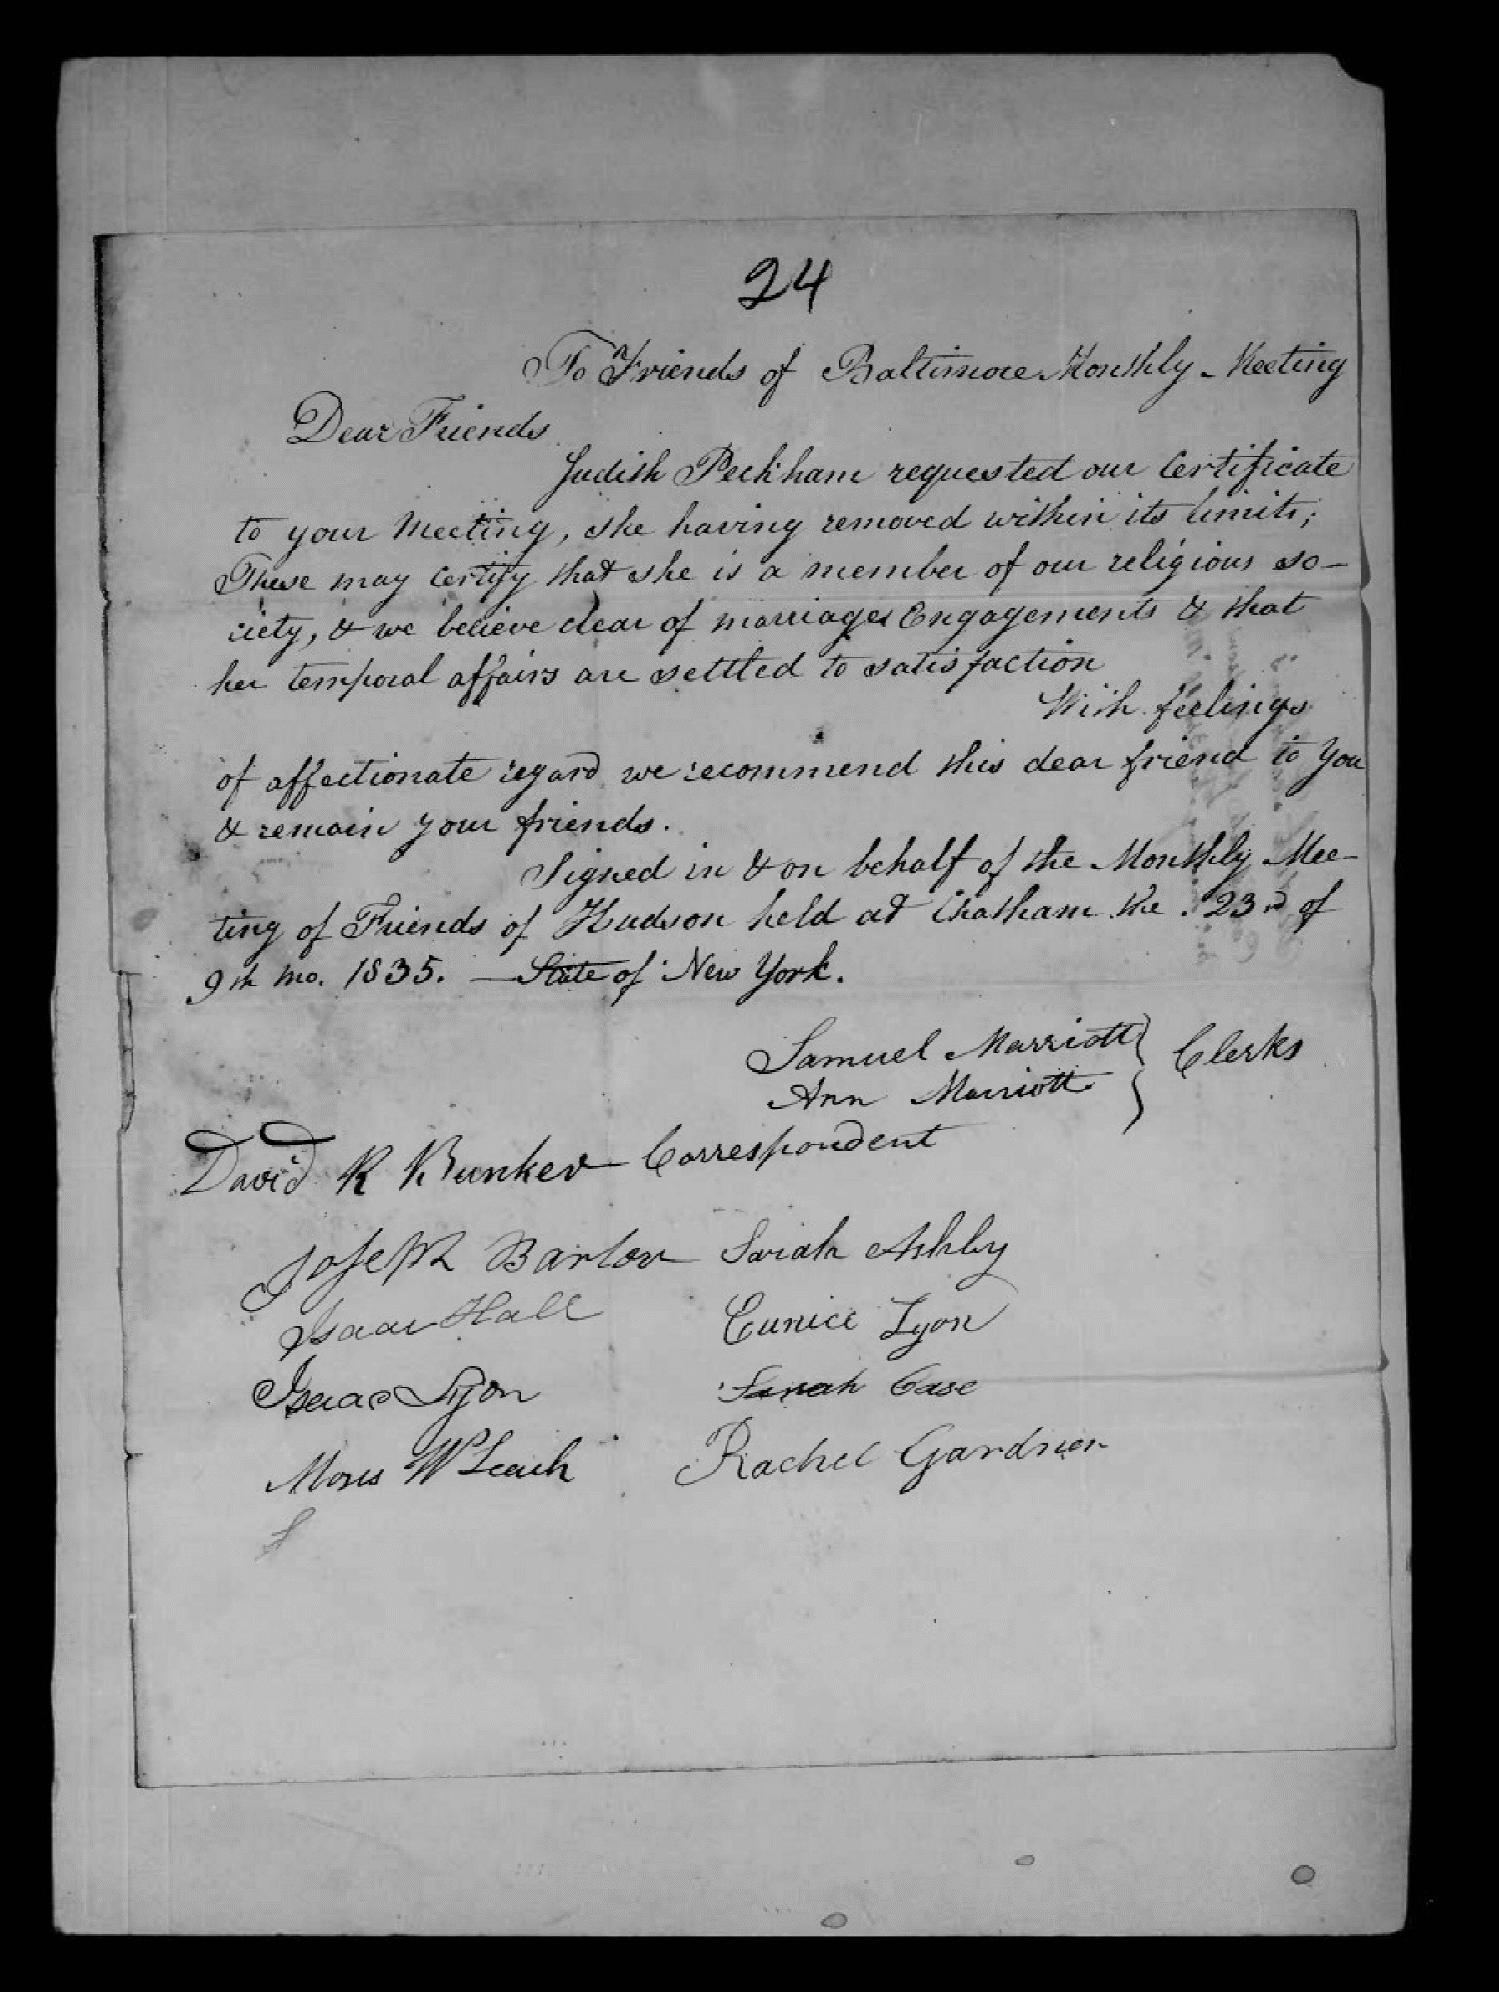 24
To Friends of Baltimore Monthly - Meeting
Dear Friends
Judith Peckham requested our Certificate
to your Meeting, she having removed within its limits;
These may certify that she is a member of our religious so-
ciety, & we believe clear of marriages Engagements & that
her temporal affairs are settled to satisfaction
With feelings
of affectionate regard we recommend this dear friend to you
& remain your friends.
Signed in & on behalf of the Monthly Mee-
ting of Friends of Hudson held at Chatham the 23rd of
9th mo. 1835. — State of New York.
Samuel Marriott } Clerks
Ann Marriott
David R Bunker Correspondent
Joseph Barlow Sarah Ashby
Isaac Hall Eunice Lyon
Isaac Lyon Sarah Case
Moses W Leach Rachel Gardner